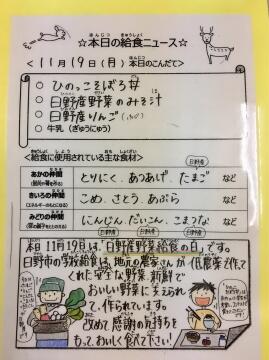 ☆本日の給食ニュース☆
<11月19日(月)本日のこんだて>
○ ひのっこそぼろ丼
○ 日野産野菜のみそ汁
○ 日野産りんご
○ 牛乳(ぎゅうにゅう)
<給食に使用されている主な食材>
あかの仲間
とりにく、あつあげ、たまご など
きいろの仲間
こめ、さとう、あぶら など
みどりの仲間
にんじん、だいこん、こまつな など
本日11月19日は、「日野産野菜給食の日」です。
日野市の学校給食は、地元の農家さんが低農薬で作って
くれた安全な野菜、新鮮で
おいしい野菜に支えられ
て、作られています。
あらためて、感謝の気持ちを
もって、おいしく食べて下さい!